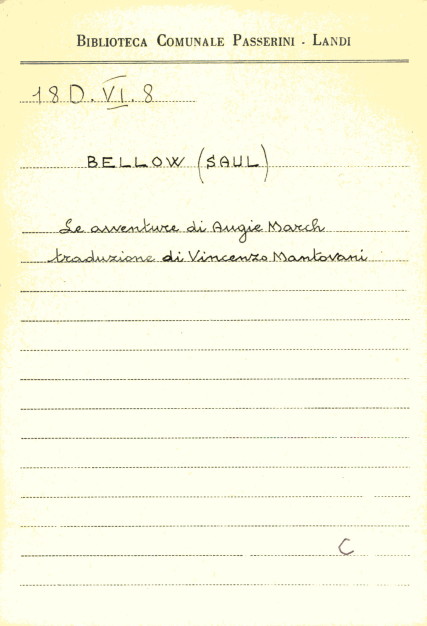 BIBLIOTECA COMUNALE PASSERINI - LANDI
18 D. VI. 8
BELLOW (SAUL)
Le avventure di Augie March
traduzione di Vincenzo Mantovani
C